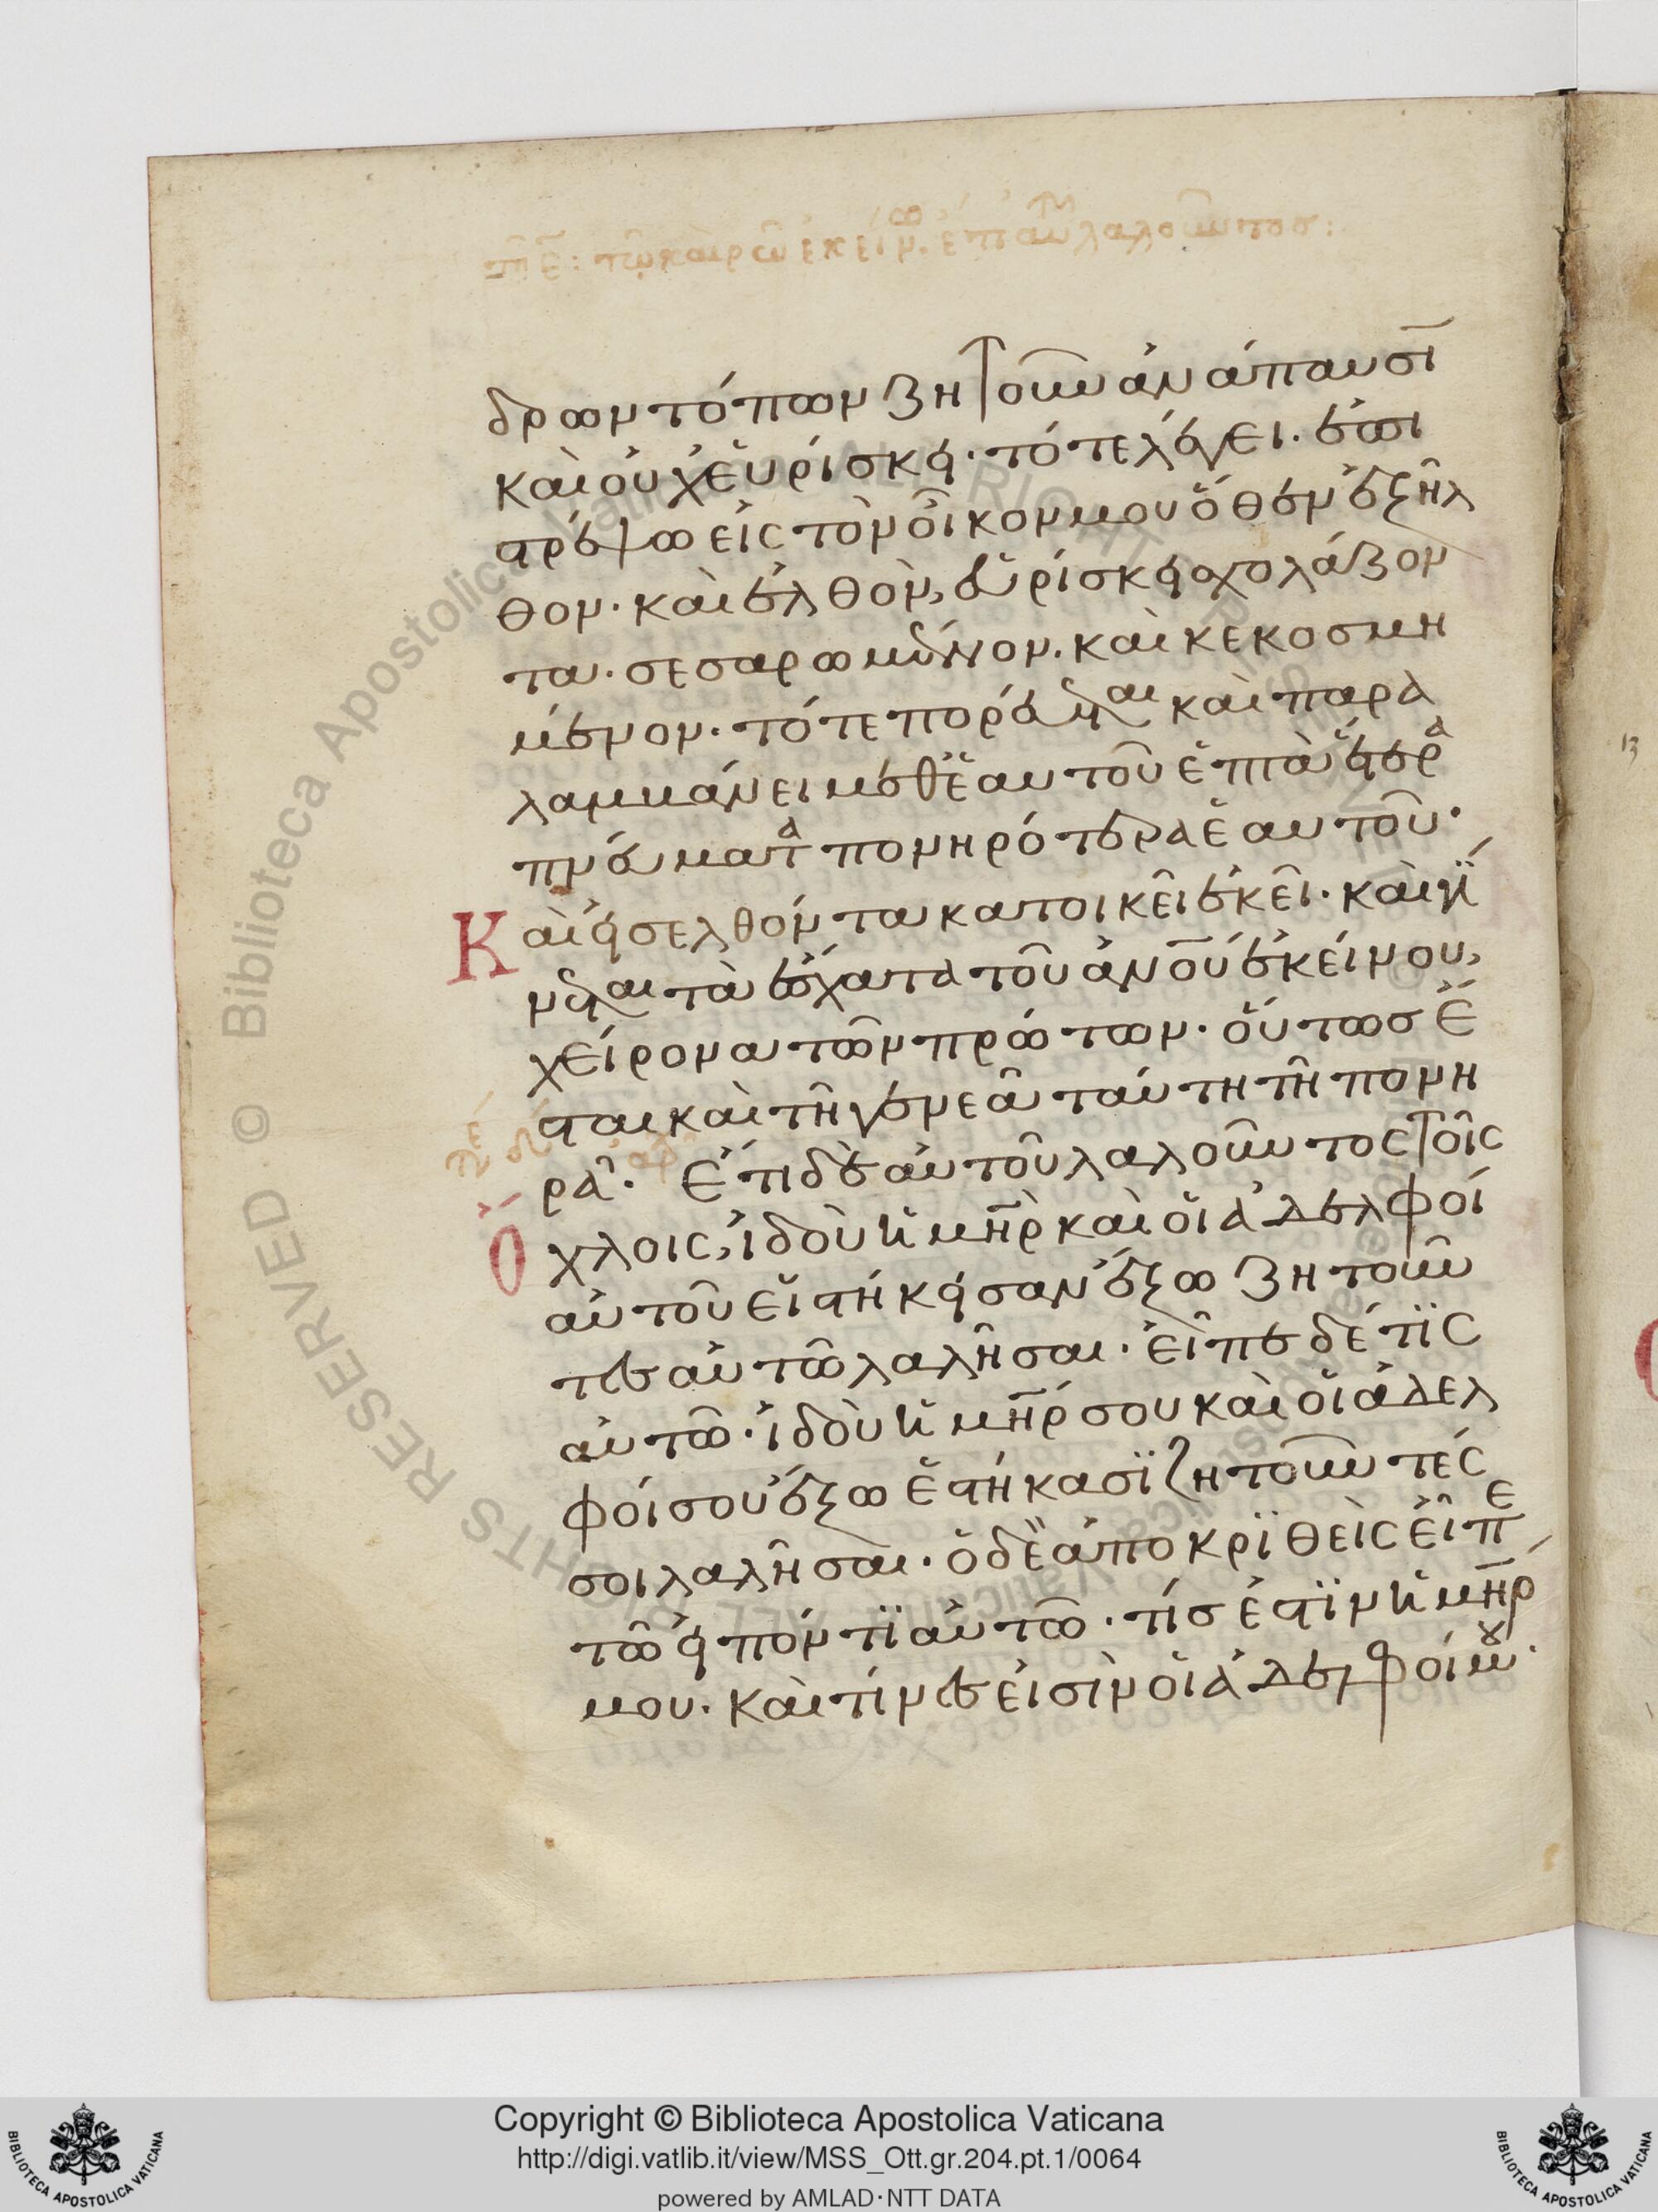 τῇ ε: τῷ καιρῷ ἐκείν. ἔτι αὐτοῦ λαλοῦντος:
δρων τόπων ζητοῦν ἀνάπαυσι
καὶ οὐχ εὑρίσκει. τότε λέγει. ἐπι
στρέψω εἰς τὸν οἶκον μου ὅθεν ἐξῆλ
θον. καὶ ἐλθὸν, εὑρίσκει σχολάζον
τα. σεσαρωμένον. καὶ κεκοσμη
μένον. τότε πορεύεται καὶ παρα
λαμβάνει μεθ ἑαυτοῦ ἑπτὰ ἕτερα
πνεύματα πονηρότερα ἑαυτοῦ.
Καὶ εἰσελθόντα κατοικεῖ ἐκεῖ. καὶ γί
νεται τὰ ἔσχατα τοῦ ἀνου ἐκείνου,
χείρονα τῶν πρώτων. οὕτως ἔ
σται καὶ τῇ γενεᾷ ταύτη τῇ πονη
ρᾷ. Ἔτι δὲ αὐτοῦ λαλοῦντος τοῖς
ὄχλοις, ἰδοὺ ἡ μηρ καὶ οἱ ἀδελφοί
αὐτοῦ εἱστήκεισαν ἔξω ζητοῦν
τες αὐτῶ λαλῆσαι. εἶπε δέ τις
αὐτῶ. ἰδοὺ ἡ μηρ σου καὶ οἱ ἀδελ
φοί σου ἔξω ἑστήκασι ζητοῦντές
σοι λαλῆσαι. ὁ δὲ ἀποκριθεὶς εἶπε
τῶ εἰπόντι αὐτῶ. τίς ἐστιν ἡ μηρ
μου. καὶ τίνες εἰσὶν οἱ ἀδελφοί μου.
13
Copyright © Biblioteca Apostolica Vaticana
http://digi.vatlib.it/view/MSS_Ott.gr.204.pt.1/0064
powered by AMLAD·NTT DATA
BIBLIOTECA APOSTOLICA VATICANA
BIBLIOTECA APOSTOLICA VATICANA